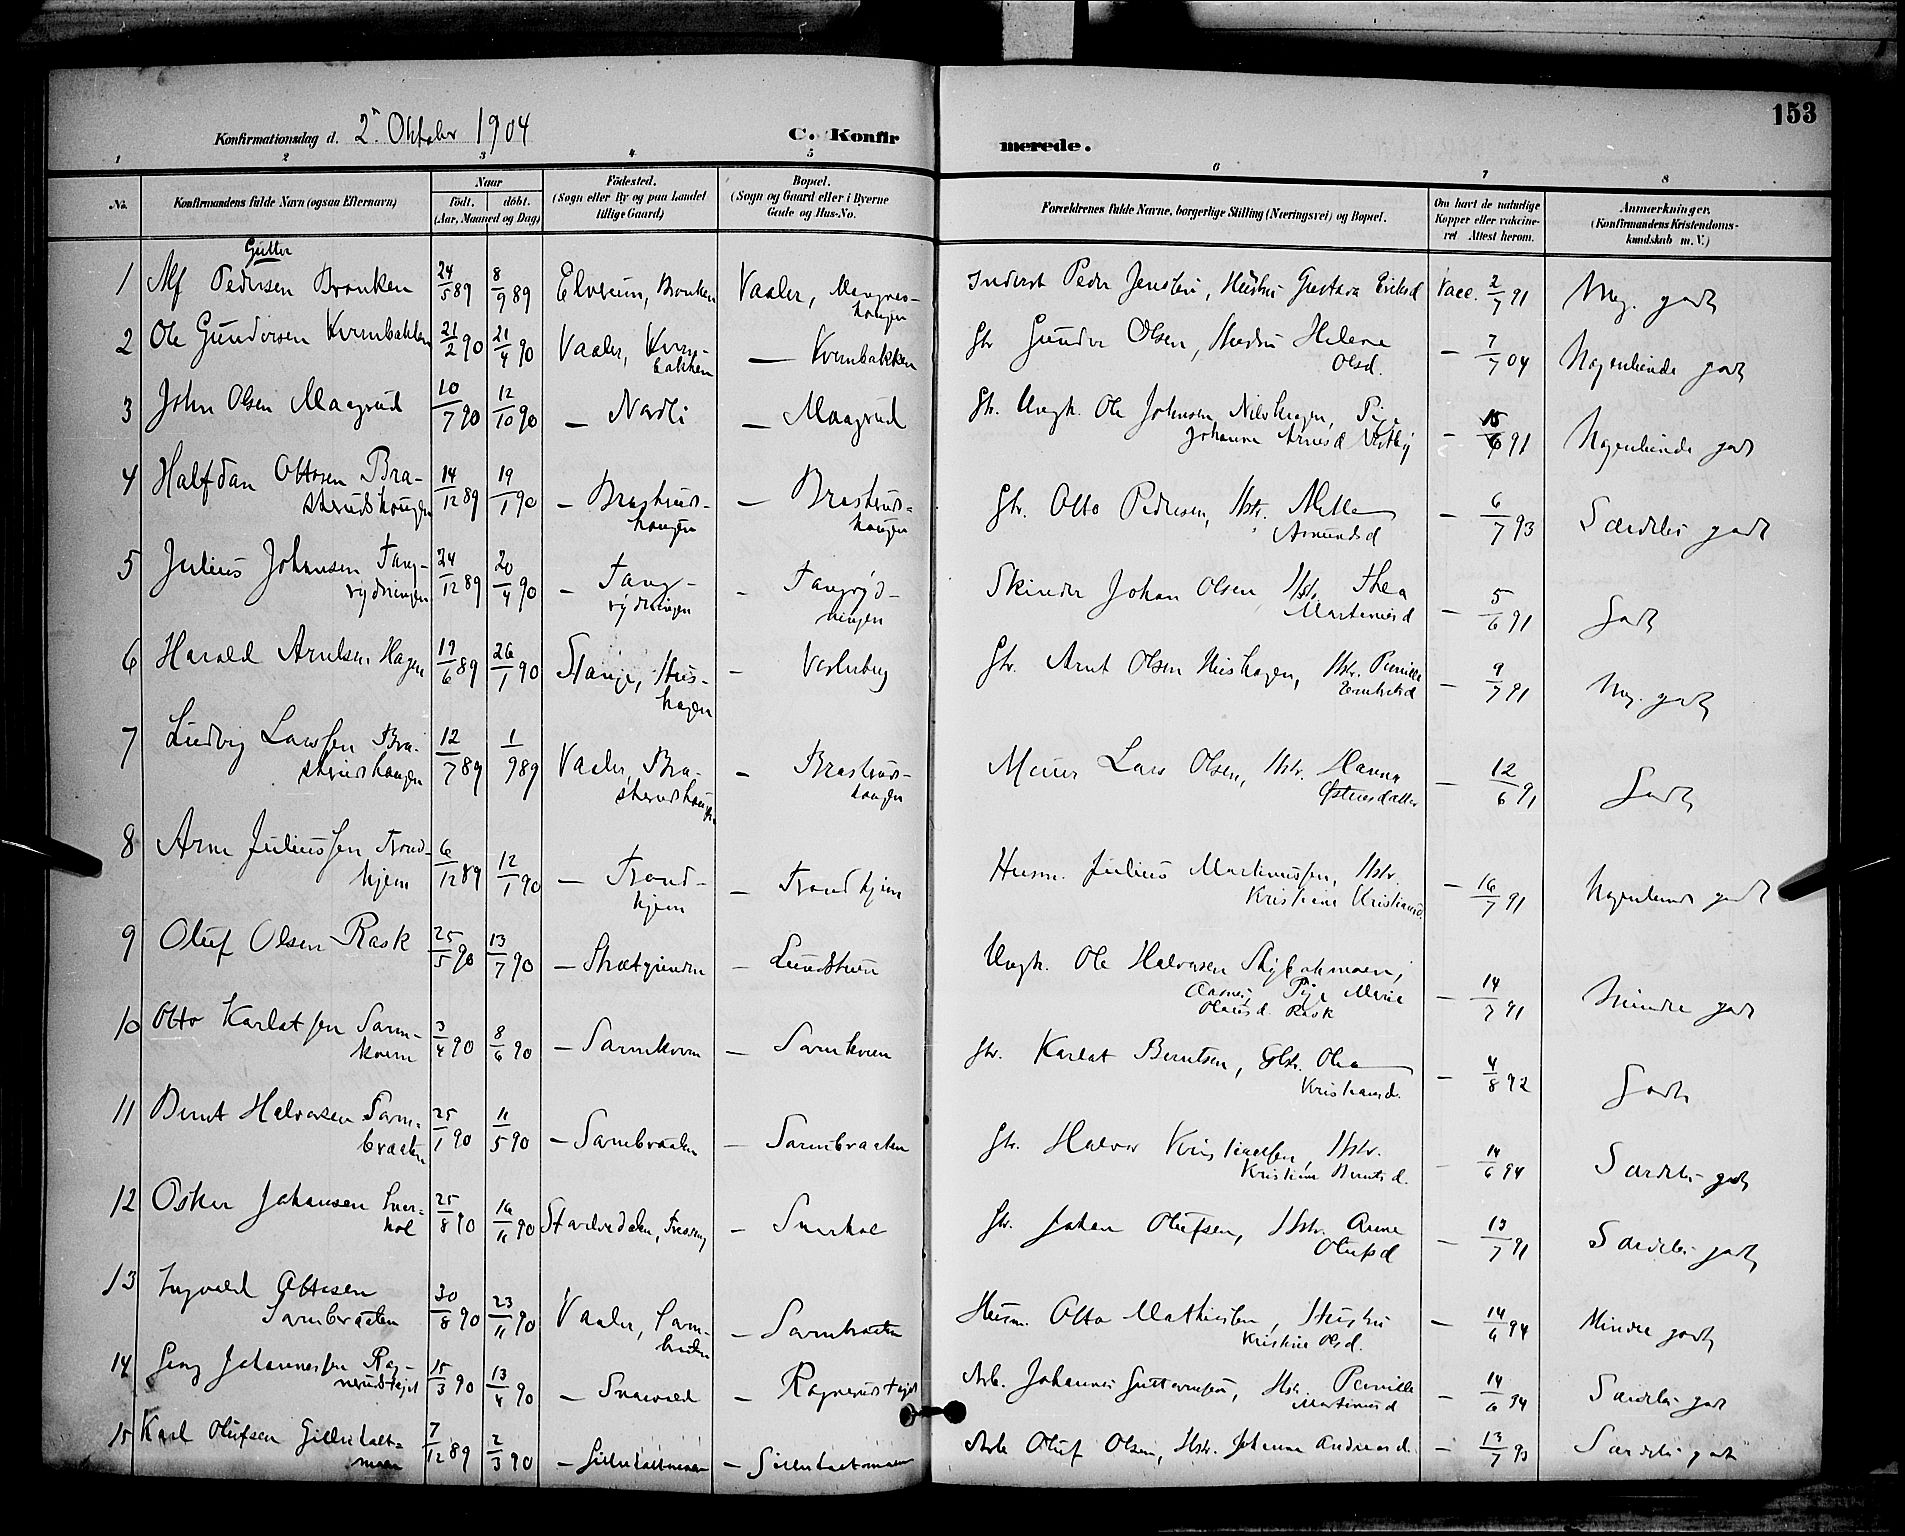 153
Konfirmationsdag d. 2. Oktober 1904
C. Konfirmerede.
1 2 3 4 5 6 7 8
No. Konfirmandens fulde Navn (ogsaa Efternavn) Naar født. døbt. (Aar, Maaned og Dag) Fødested. (Sogn eller By og paa Landet tillige Gaard) Bopæl. (Sogn og Gaard eller i Byerne Gade og Hus-No. Forældrenes fulde Navne, borgerlige Stilling (Næringsvei) og Bopæl. Om havt de naturlige Kopper eller vaccineret Attest herom. Anmærkninger. (Konfirmandens Kristendomskundskab m. V.)
Gutter
1 Alf Pedersen Bronken 24/5 89 8/9 89 Elverum, Bronken Vaaler, Inderst Peder Jensen, Hustru Gustava Eriksd Vacc. 2/7 91 Meg. godt
2 Ole Gundersen Kvernbakken 21/2 90 21/4 90 Vaaler, Kvernbakken — Kvernbakken Gbr Gunder Olsen, Hustru Helene Olsd. — 7/7 04 Nogenlunde godt
3 John Olsen Maagrud 10/7 90 12/10 90 — Nordli — Maagrud Gbr. Ungk. Ole Johnsen Pige Johanne Arnesd — 15/6 91 Nogenlunde godt
4 Halfdan Ottosen Braskerudhaugen 14/12 89 19/1 90 — Braskerudhaugen — Braskerudhaugen Gbr. Otto Pedersen, Hstr. Mette Amundsd — 6/7 93 Særdeles godt
5 Julius Johansen Tangrydningen 24/12 89 20/4 90 — Tangrydningen — Tangrydningen Skinder Johan Olsen, Hstr. Thea Martinusd — 5/6 91 Godt
6 Harald Arntsen Hagen 19/6 89 26/1 90 Stange, — Vesleberg Gbr. Arnt Olsen Hstr. Pernille — 9/7 91 Meg. godt
7 Ludvig Larssen Braskerudhaugen 12/7 89 1/9 89 Vaaler, Braskerudhaugen — Braskerudhaugen Murer Lars Olsen, Hstr. Hanna — 12/6 91 Godt
8 Arne Juliussen Trondhjem 6/12 89 12/1 90 — Trondhjem — Trondhjem Husm. Julius Martinussen, Hstr. Kristine Kristiansd. — 16/7 91 Nogenlunde godt
9 Oluf Olsen Rask 25/5 90 13/7 90 — — Ungk. Ole Halvorsen Pige Marie Olausd. Rask — 14/7 91 Mindre godt
10 Otto Karlatsen Sarmkvern 3/4 90 8/6 90 — Sarmkvern — Sarmkvern Gbr. Karlat Berntsen, Hstr. Olea Kristiansd. — 4/8 92 Godt
11 Bernt Halvorsen Sarmbraaten 25/1 90 11/5 90 — Sarmbraaten — Sarmbraaten Gbr. Halvor Kristiansen, Hstr. Kristine Berntsd. — 14/6 94 Særdeles godt
12 Oskar Johansen Snerkol 25/8 90 16/11 90 — Snerkol Gbr. Johan Olufsen, Hstr. Anne Olufsd — 13/7 91 Særdeles godt
13 Ingvald Ottesen Sarmbraaten 30/8 90 23/11 90 Vaaler, Sarmbraaten — Sarmbraaten Husm. Otto Mathiesen, Hustru Kristine Olsd. — 14/6 94 Mindre godt
14 Georg Johannessen 15/3 90 13/4 90 — — Arb. Johannes Guttormsen, Hstr. Pernille Martinusd — 14/6 94 Særdeles godt
15 Karl Olufsen Gillerholtmoen 7/12 89 2/3 90 — Gillerholtmoen — Gillerholtmoen Arb. Oluf Olsen, Hstr. Johanne Andreasd. — 13/7 93 Særdeles godt